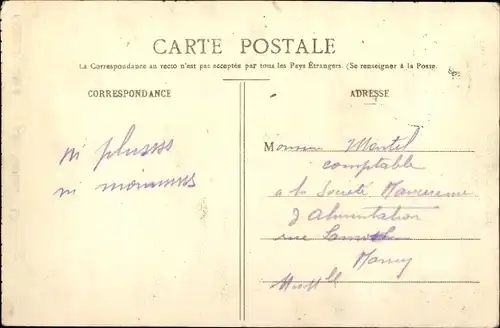 CARTE POSTALE
La Correspondance au recto n'est pas acceptée par tous les Pays Étrangers. (Se renseigner à la Poste.
CORRESPONDANCE
ADRESSE
ni plussss
ni moinnnss
Monsieur
comptable
a la Société
d'alimentation
rue
Nancy